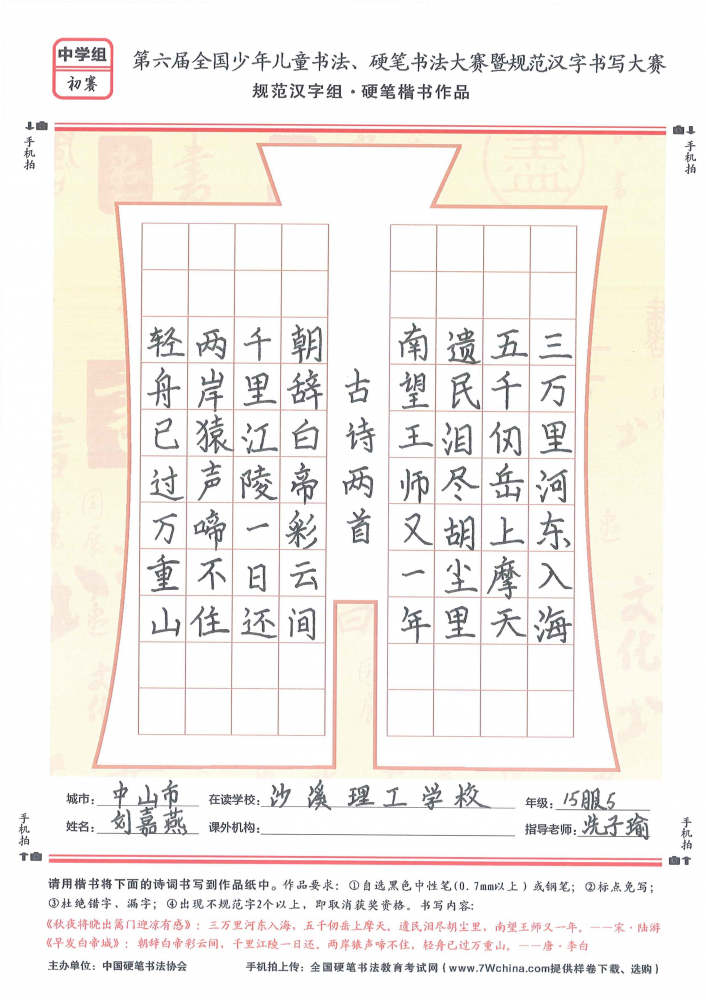 中学组
初赛
第六届全国少年儿童书法、硬笔书法大赛暨规范汉字书写大赛
规范汉字组·硬笔楷书作品
手机拍
手机拍
三万里河东入海
五千仞岳上摩天
遗民泪尽胡尘里
南望王师又一年
古诗两首
朝辞白帝彩云间
千里江陵一日还
两岸猿声啼不住
轻舟已过万重山
城市：中山市 在读学校：沙溪理工学校 年级：15服5
姓名：刘嘉燕 课外机构： 指导老师：冼子瑜
手机拍
手机拍
请用楷书将下面的诗词书写到作品纸中。作品要求：①自选黑色中性笔(0.7mm以上）或钢笔；②标点免写；
③杜绝错字、漏字；④出现不规范字2个以上，即取消获奖资格。书写内容：
《秋夜将晓出篱门迎凉有感》：三万里河东入海，五千仞岳上摩天。遗民泪尽胡尘里，南望王师又一年。——宋·陆游
《早发白帝城》：朝辞白帝彩云间，千里江陵一日还。两岸猿声啼不住，轻舟已过万重山。——唐·李白
主办单位：中国硬笔书法协会 手机拍上传：全国硬笔书法教育考试网（www.7Wchina.com提供样卷下载、选购）